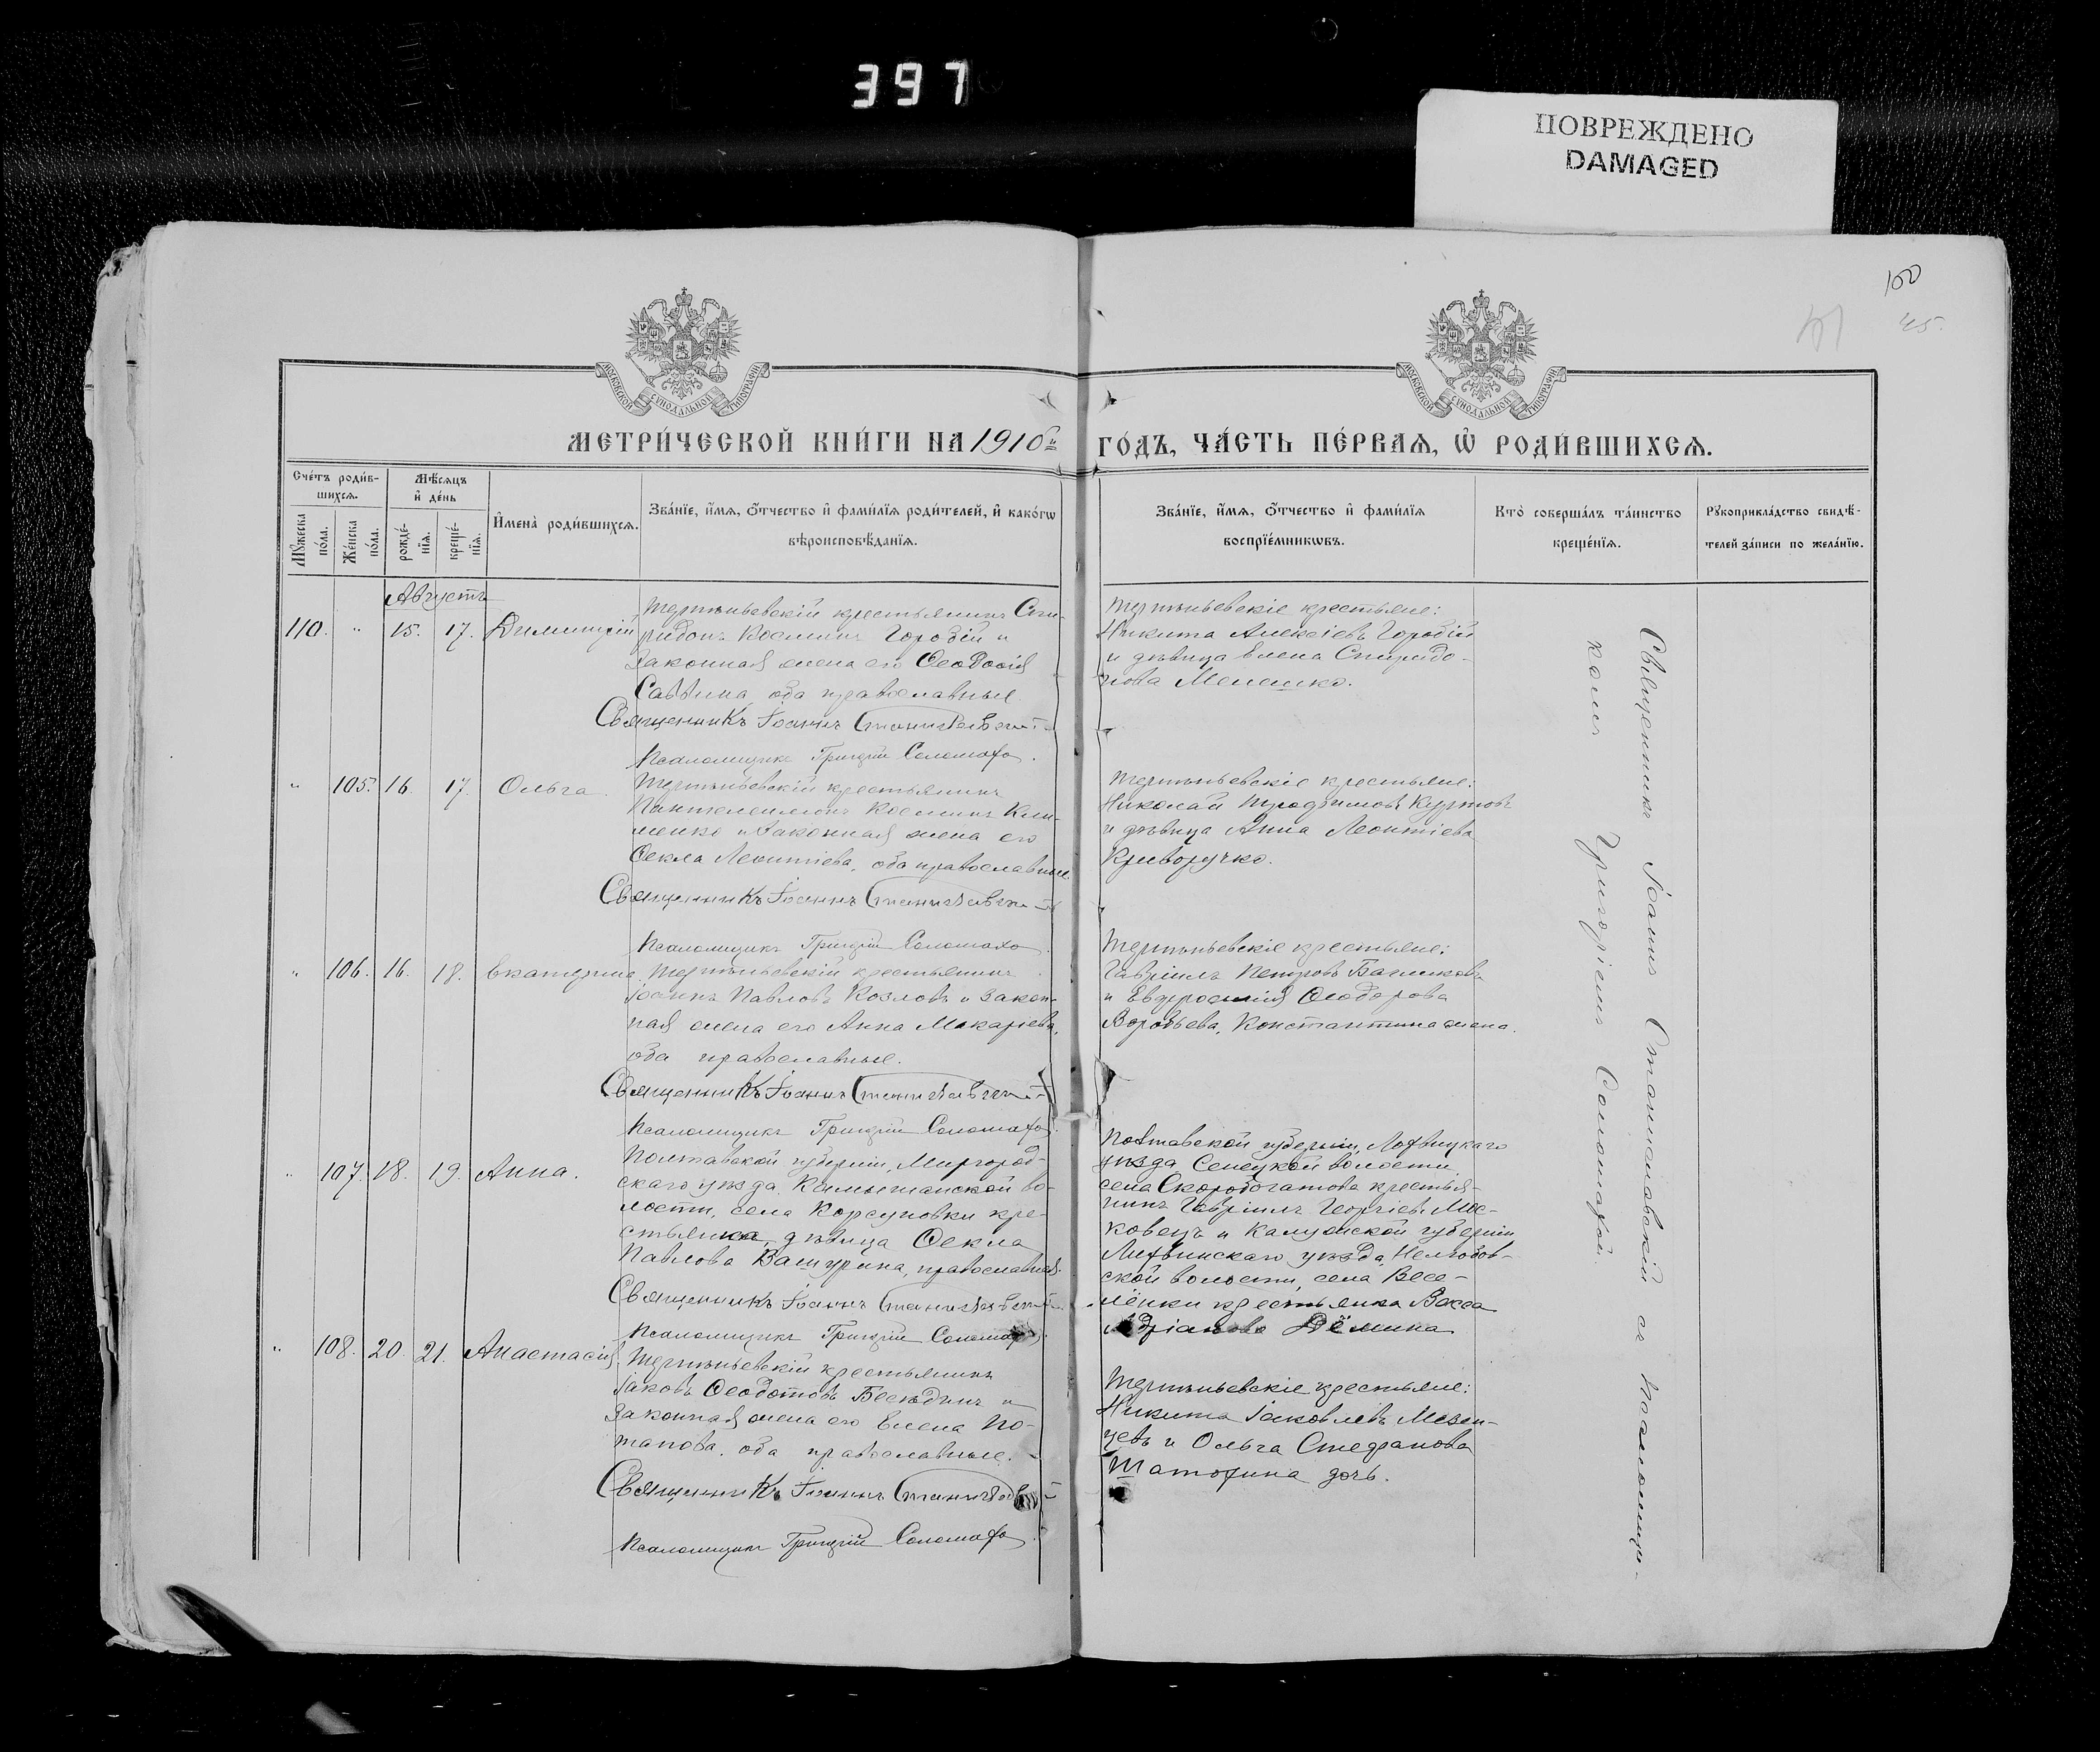 397
ПОВРЕЖДЕНО
DAMAGED
100
45.
МОСКОВСКОЙ СѴНОДАЛЬНОЙ ТИПОГРАФІИ
МОСКОВСКОЙ СѴНОДАЛЬНОЙ ТИПОГРАФІИ
МЕТРИ́ЧЕСКОЙ КНИ́ГИ НА 1910й
ГО́ДЪ, ЧА́СТЬ ПЕ́РВАѦ, Ѡ҆ РОДИ́ВШИХСѦ.
Сче́тъ роди́в-
шихсѧ.
Мꙋ́жеска по́ла.
Же́нска по́ла.
Мѣ́сѧцъ
и҆ де́нь
рожде́-
нїѧ.
креще́-
нїѧ.
И҆мена̀ роди́вшихсѧ.
Зва́нїе, и҆́мѧ, ѻ҆́тчество и҆ фами́лїѧ роди́телей, и҆ како́гѡ
вѣроисповѣ́данїѧ.
Зва́нїе, и҆́мѧ, ѻ҆́тчество и҆ фами́лїѧ
воспрїе́мникѡвъ.
Кто̀ соверша́лъ та́инство
креще́нїѧ.
Рꙋкоприкла́дство свидѣ́-
телей за́писи по жела́нїю.
Августъ
110. " 15. 17. Димитрій
Терпѣньевскій крестьянинъ Спи-
ридонъ Косминъ Городій и
законная жена его Ѳеодосія
Саввина, оба православные.
Священникъ Іоаннъ Станиславскій
Псаломщикъ Григорій Соломаха.
Терпѣньевскіе крестьяне:
Никита Алексіевъ Городій
и дѣвица Елена Спиридо-
нова Мелешко.
" 105. 16. 17. Ольга
Терпѣньевскій крестьянинъ
Пантелеимонъ Косминъ Кли-
менко и законная жена его
Ѳекла Леонтіева, оба православные
Священникъ Іоаннъ Станиславскій
Псаломщикъ Григорій Соломаха.
Терпѣньевскіе крестьяне:
Николай Трофимовъ Куртовъ
и дѣвица Анна Леонтіева
Криворучко.
" 106. 16. 18. Екатерина
Терпѣньевскій крестьянинъ
Іоаннъ Павловъ Козловъ и закон-
ная жена его Анна Макаріева,
оба православные.
Священникъ Іоаннъ Станиславскій
Псаломщикъ Григорій Соломаха.
Терпѣньевскіе крестьяне:
Гавріилъ Петровъ
и Евфросинія Ѳеодорова
Воробьева, Константина жена.
" 107. 18. 19. Анна.
Полтавской губерніи, Миргород-
скаго уѣзда, Камышанской во-
лости, села Корсуновки кре-
стьянка, дѣвица Ѳекла
Павлова Вашурина, православная.
Священникъ Іоаннъ Станиславскій
Псаломщикъ Григорій Соломаха.
Полтавской губерніи, Лохвицкаго
уѣзда Сенецкой волости
села Скоробогатова крестья-
нинъ Гавріилъ Георгіевъ Мос-
ковецъ и Калужской губерніи
Лихвинскаго уѣзда,
ской волости, села Весе-
лёнки крестьянка Васса
Адріанова Дёмина
" 108. 20. 21. Анастасія.
Терпѣньевскій крестьянинъ
Іаковъ Ѳеодотовъ Бесѣдинъ и
законная жена его Елена По-
тапова, оба православные.
Священникъ Іоаннъ Станиславскій
Псаломщикъ Григорій Соломаха.
Терпѣньевскіе крестьяне:
Никита Іаковлевъ Мезен-
цевъ и Ольга Стефанова
Шатохина дочь.
Священникъ Іоаннъ Станиславскій съ псаломщи-
комъ Григоріемъ Соломахой.